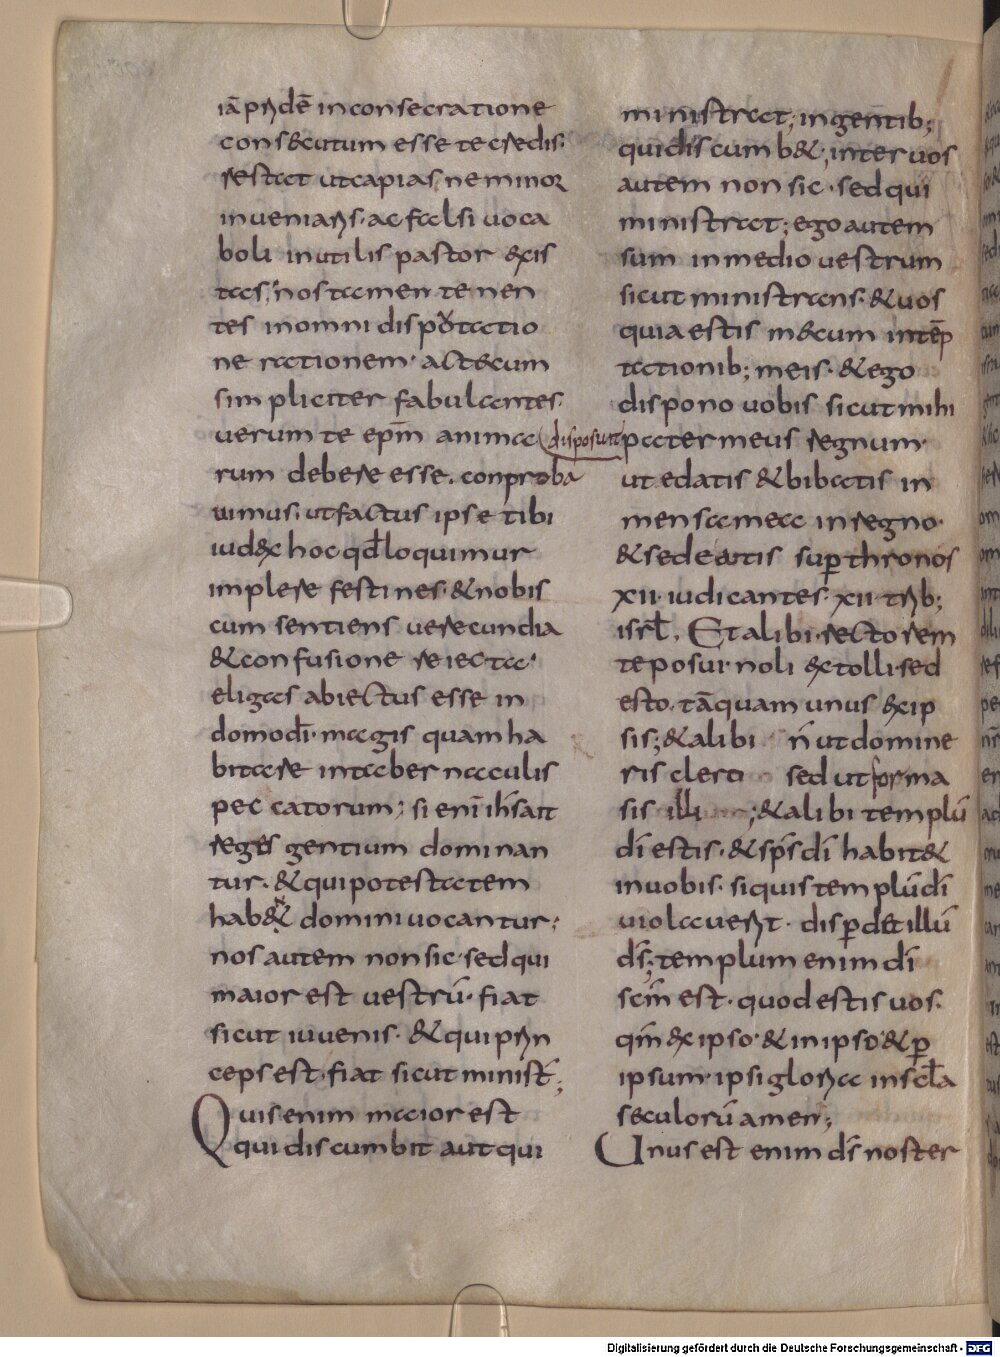 iā pridē in consecratione
consecutum esse te credis.
restat ut capias, ne minor
inueniaris. ac falsi uoca
boli inutilis pastor &xis
tas; nos tamen tenen
tes in omni disputatio
ne rationem. ac tecum
simpliciter fabulantes.
uerum te epm̄ anima
rum debere esse. conproba
uimus. ut factus ipse tibi
iud&x hoc qđ loquimur
implere festines. & nobis
cum sentiens uerecundia
& confusione reiecta.
eligas abiectus esse in
domo dī. magis quam ha
bitare in tabernaculis
peccatorum; si enī ih̄s ait
reges gentium dominan
tur. & qui potestatem
hab& domini uocantur;
uos autem non sic. sed qui
maior est uestrū. fiat
sicut iuuenis. & qui prin
ceps est. fiat sicut minist̄;
Quis enim maior est
qui discumbit aut qui
ministrat; in gentib;
qui discumb&; inter uos
autem non sic. sed qui
ministrat; ego autem
sum in medio uestrum
sicut ministrans. & uos
quia estis mecum in tēp
tationib; meis. & ego
dispono uobis sicut mihi
disposuit pater meus regnum.
ut edatis & bibatis in
mensa mea in regno.
& sedeatis sup thronos
xii. iudicantes. xii. trib;
isrl̄. Et alibi. rectorem
te posui noli &xtolli. sed
esto. tāquam unus &x ip
sis; & alibi n̄ ut domine
ris cleri sed ut forma
sis illi; & alibi templū
dī estis. & sp̄s dī habit&
in uobis. siquis templū dī
uiolauerit. disp̱d& illū
ds̄; templum enim dī
scm̄ est. quod estis uos.
qm̄ &x ipso. & in ipso. & p̱
ipsum. ipsi gloria in scl̄a
seculorū amen;
Unus est enim ds̄ noster
Digitalisierung gefördert durch die Deutsche Forschungsgemeinschaft - DFG